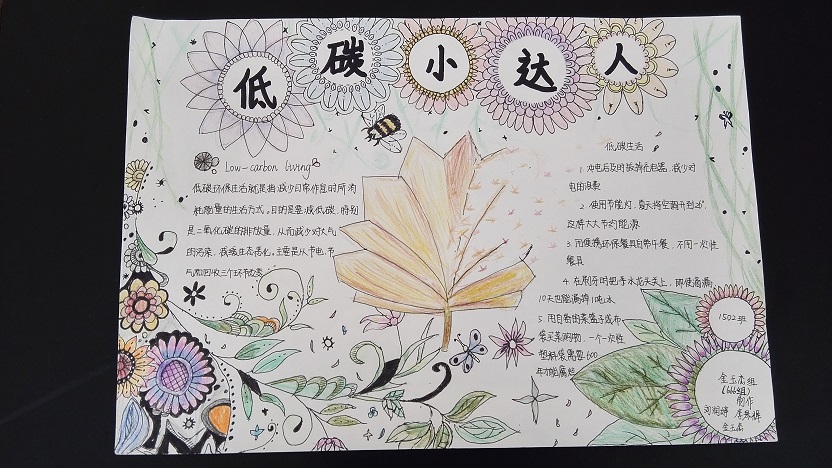 低碳小达人
Low-carbon living
低碳环保生活就是指减少日常作息时所消
耗能量的生活方式。目的是要减低碳，特别
是二氧化碳的排放量，从而减少对大气
的污染，减缓生态恶化。主要是从节电、节
气和回收三个环节改变。
低碳生活
1. 充电后及时拔掉充电器，减少对
电的浪费
2. 使用节能灯，夏天将空调升到26°，
这样大大节约能源
3. 用便携环保餐具自带午餐，不用一次性
餐具
4. 在刷牙时把手水龙头关上，即使滴漏
10天也能漏掉1吨水
5. 用自备的菜篮子或布
袋买菜购物，一个一次性
塑料袋需要600
年才能腐烂
1502班
组
(666组)
制作